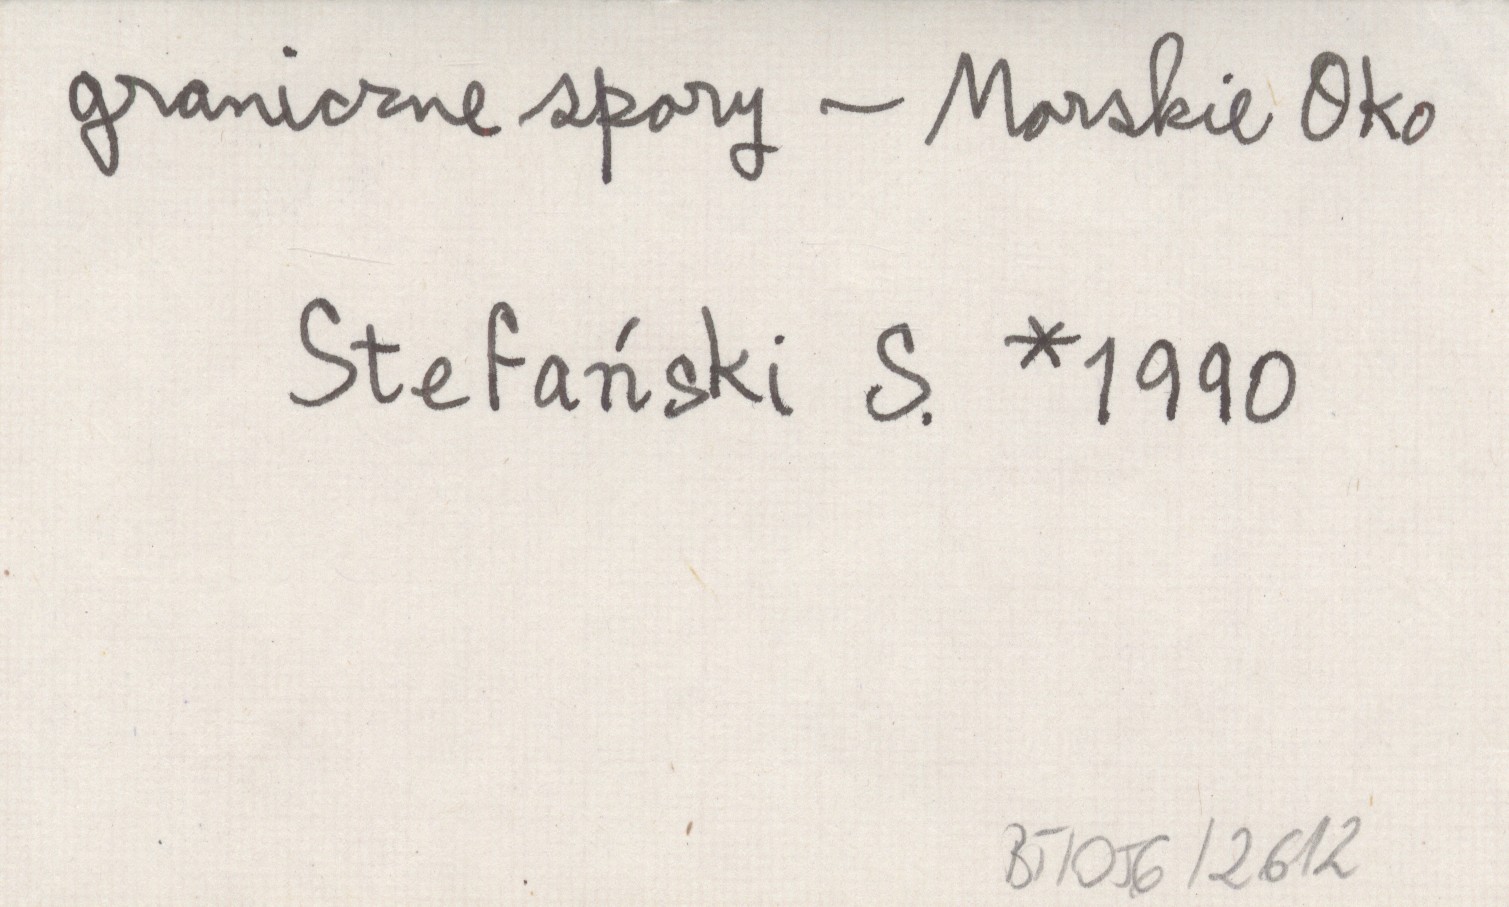 graniczne spory – Morskie Oko
Stefański S. *1990
BT/OJG/2612